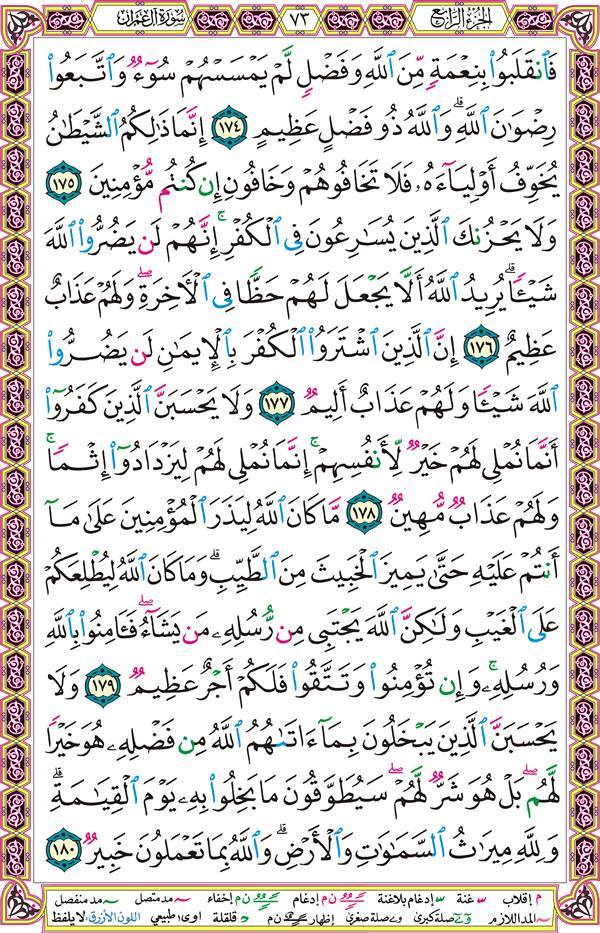 سورة آل عمران ٧٣ الجزء الرابع
فَٱنقَلَبُوا۟ بِنِعْمَةٍ مِّنَ ٱللَّهِ وَفَضْلٍ لَّمْ يَمْسَسْهُمْ سُوٓءٌ وَٱتَّبَعُوا۟
رِضْوَٰنَ ٱللَّهِ ۗ وَٱللَّهُ ذُو فَضْلٍ عَظِيمٍ ١٧٤ إِنَّمَا ذَٰلِكُمُ ٱلشَّيْطَٰنُ
يُخَوِّفُ أَوْلِيَآءَهُۥ فَلَا تَخَافُوهُمْ وَخَافُونِ إِن كُنتُم مُّؤْمِنِينَ ١٧٥
وَلَا يَحْزُنكَ ٱلَّذِينَ يُسَٰرِعُونَ فِى ٱلْكُفْرِ ۚ إِنَّهُمْ لَن يَضُرُّوا۟ ٱللَّهَ
شَيْـًٔا ۗ يُرِيدُ ٱللَّهُ أَلَّا يَجْعَلَ لَهُمْ حَظًّا فِى ٱلْـَٔاخِرَةِ ۖ وَلَهُمْ عَذَابٌ
عَظِيمٌ ١٧٦ إِنَّ ٱلَّذِينَ ٱشْتَرَوُا۟ ٱلْكُفْرَ بِٱلْإِيمَٰنِ لَن يَضُرُّوا۟
ٱللَّهَ شَيْـًٔا وَلَهُمْ عَذَابٌ أَلِيمٌ ١٧٧ وَلَا يَحْسَبَنَّ ٱلَّذِينَ كَفَرُوٓا۟
أَنَّمَا نُمْلِى لَهُمْ خَيْرٌ لِّأَنفُسِهِمْ ۚ إِنَّمَا نُمْلِى لَهُمْ لِيَزْدَادُوٓا۟ إِثْمًا ۚ
وَلَهُمْ عَذَابٌ مُّهِينٌ ١٧٨ مَّا كَانَ ٱللَّهُ لِيَذَرَ ٱلْمُؤْمِنِينَ عَلَىٰ مَآ
أَنتُمْ عَلَيْهِ حَتَّىٰ يَمِيزَ ٱلْخَبِيثَ مِنَ ٱلطَّيِّبِ ۗ وَمَا كَانَ ٱللَّهُ لِيُطْلِعَكُمْ
عَلَى ٱلْغَيْبِ وَلَٰكِنَّ ٱللَّهَ يَجْتَبِى مِن رُّسُلِهِۦ مَن يَشَآءُ ۖ فَـَٔامِنُوا۟ بِٱللَّهِ
وَرُسُلِهِۦ ۚ وَإِن تُؤْمِنُوا۟ وَتَتَّقُوا۟ فَلَكُمْ أَجْرٌ عَظِيمٌ ١٧٩ وَلَا
يَحْسَبَنَّ ٱلَّذِينَ يَبْخَلُونَ بِمَآ ءَاتَىٰهُمُ ٱللَّهُ مِن فَضْلِهِۦ هُوَ خَيْرًا
لَّهُم ۖ بَلْ هُوَ شَرٌّ لَّهُمْ ۖ سَيُطَوَّقُونَ مَا بَخِلُوا۟ بِهِۦ يَوْمَ ٱلْقِيَٰمَةِ ۗ
وَلِلَّهِ مِيرَٰثُ ٱلسَّمَٰوَٰتِ وَٱلْأَرْضِ ۗ وَٱللَّهُ بِمَا تَعْمَلُونَ خَبِيرٌ ١٨٠
م إقلاب غنة إدغام بلاغنة ن م إدغام ن م إخفاء مد متصل مد منفصل
المد اللازم صلة كبرى صلة صغرى إظهار ن م قلقلة اوى طبيعي اللون الأزرق: لا يلفظ